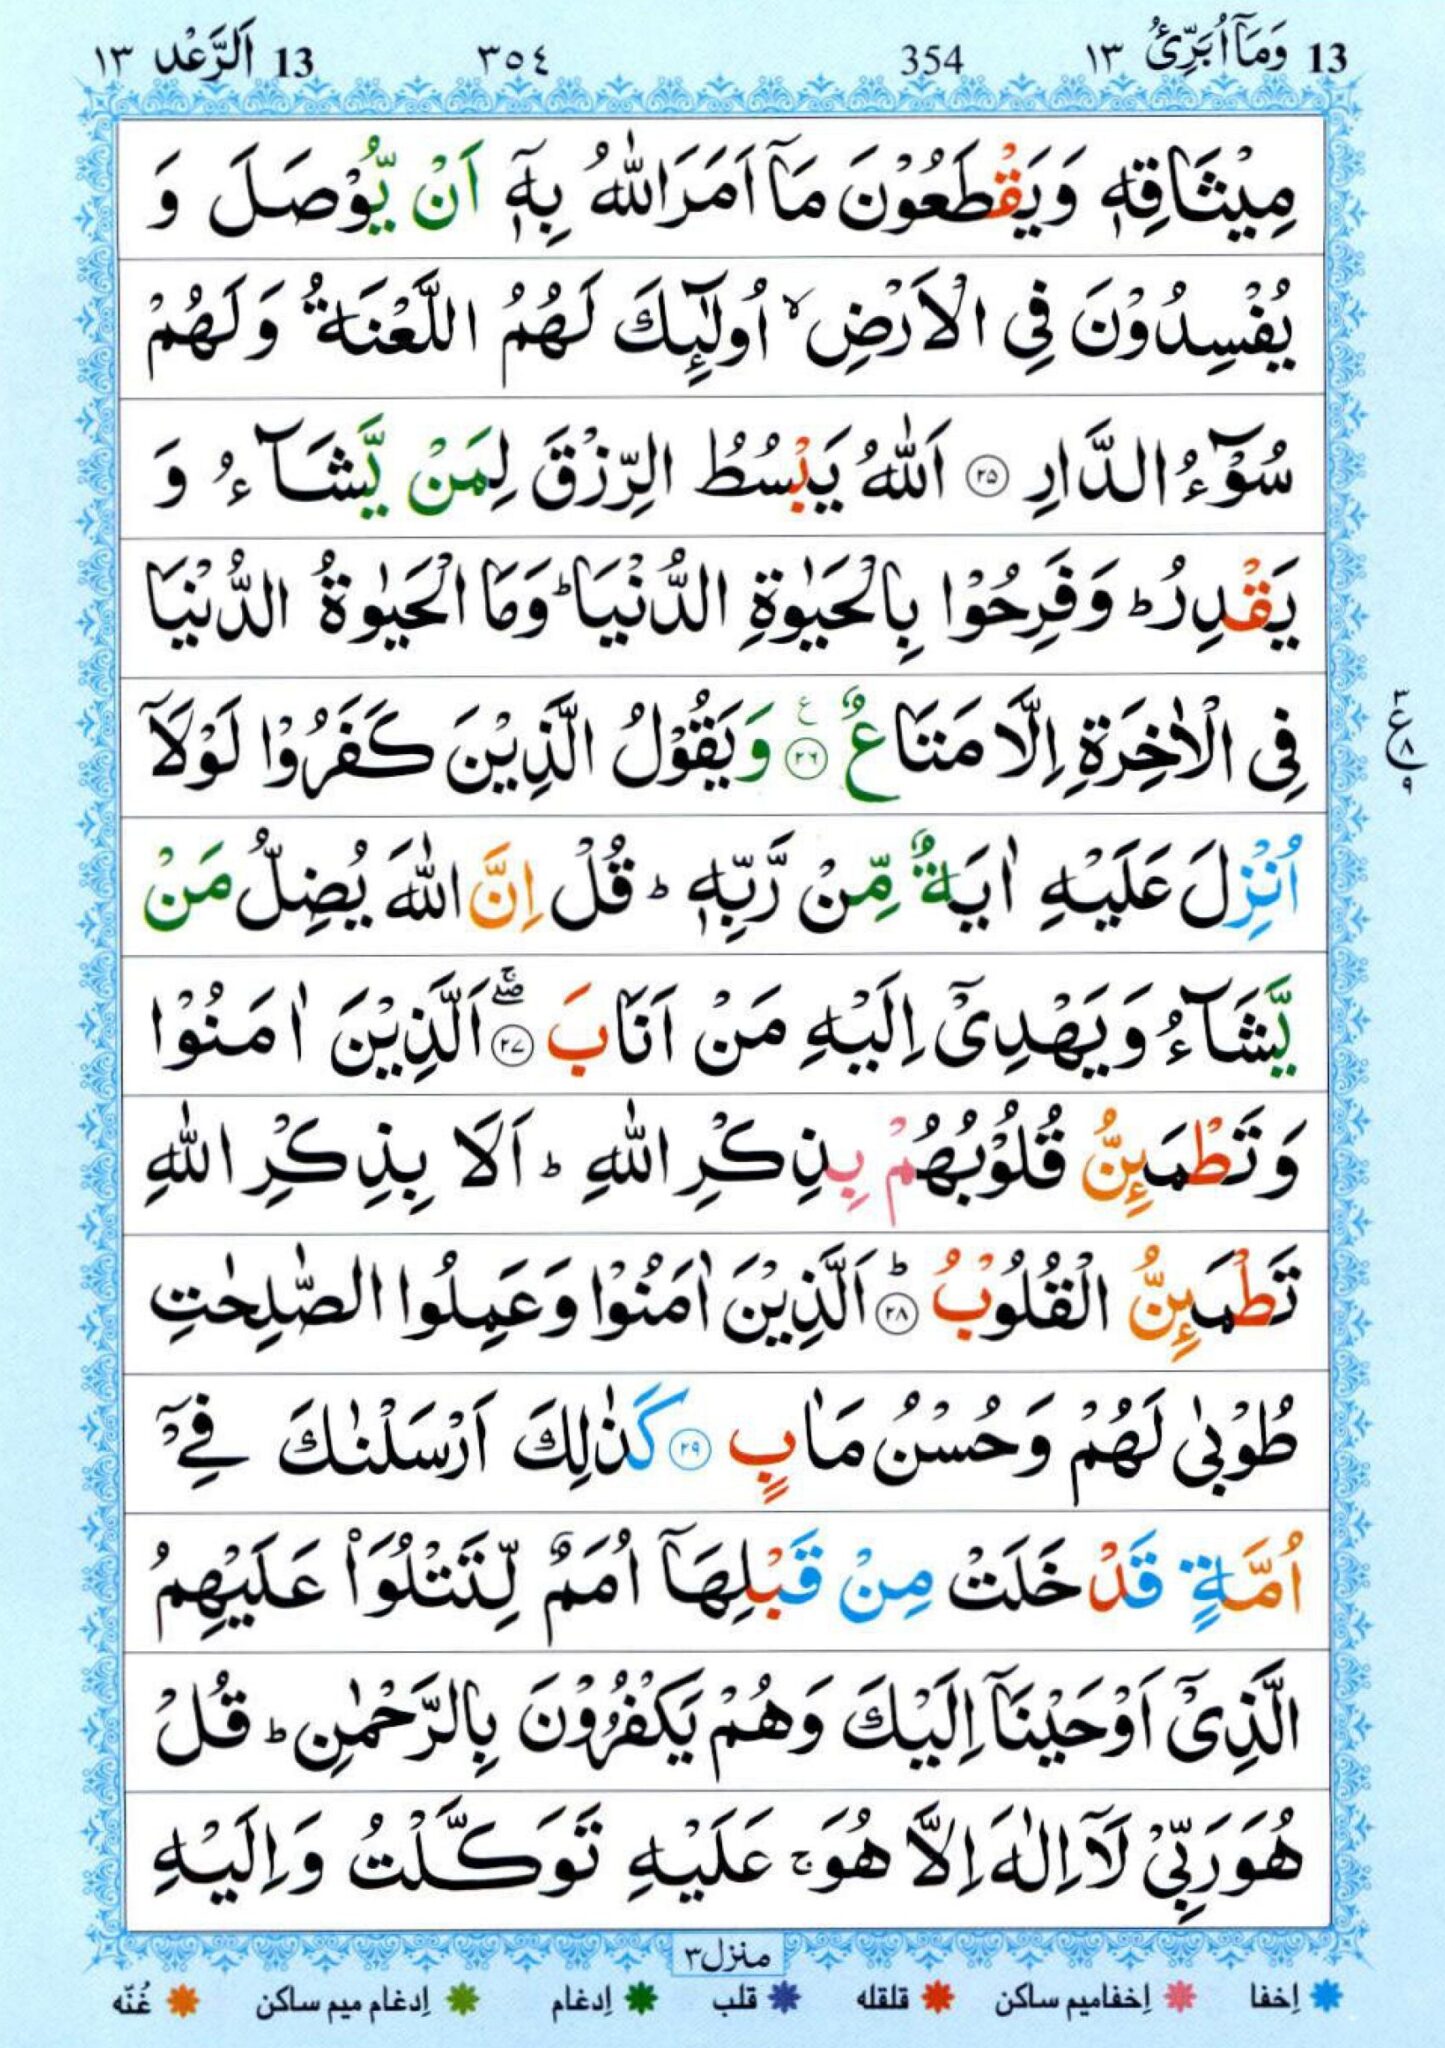 13 وَمَاۤ اُبَرِّئُ ١٣ 354 ٣٥٤ 13 اَلرَّعْد ١٣
مِيْثَاقِهٖ وَيَقْطَعُوْنَ مَاۤ اَمَرَ اللّٰهُ بِهٖۤ اَنْ يُّوْصَلَ وَ
يُفْسِدُوْنَ فِى الْاَرْضِ ۙ اُولٰٓئِكَ لَهُمُ اللَّعْنَةُ وَلَهُمْ
سُوْٓءُ الدَّارِ ﴿٢٥﴾ اَللّٰهُ يَبْسُطُ الرِّزْقَ لِمَنْ يَّشَآءُ وَ
يَقْدِرُ ؕ وَفَرِحُوْا بِالْحَيٰوةِ الدُّنْيَا ؕ وَمَا الْحَيٰوةُ الدُّنْيَا
فِى الْاٰخِرَةِ اِلَّا مَتَاعٌ ﴿٢٦﴾ ع وَيَقُوْلُ الَّذِيْنَ كَفَرُوْا لَوْلَاۤ
٣ ع ٨ ٩
اُنْزِلَ عَلَيْهِ اٰيَةٌ مِّنْ رَّبِّهٖ ؕ قُلْ اِنَّ اللّٰهَ يُضِلُّ مَنْ
يَّشَآءُ وَيَهْدِىْۤ اِلَيْهِ مَنْ اَنَابَ ﴿٢٧﴾ ۖۚ اَلَّذِيْنَ اٰمَنُوْا
وَتَطْمَئِنُّ قُلُوْبُهُمْ بِذِكْرِ اللّٰهِ ؕ اَلَا بِذِكْرِ اللّٰهِ
تَطْمَئِنُّ الْقُلُوْبُ ﴿٢٨﴾ ؕ اَلَّذِيْنَ اٰمَنُوْا وَعَمِلُوا الصّٰلِحٰتِ
طُوْبٰى لَهُمْ وَحُسْنُ مَاٰبٍ ﴿٢٩﴾ كَذٰلِكَ اَرْسَلْنٰكَ فِىْۤ
اُمَّةٍ قَدْ خَلَتْ مِنْ قَبْلِهَاۤ اُمَمٌ لِّتَتْلُوَا۟ عَلَيْهِمُ
الَّذِىْۤ اَوْحَيْنَاۤ اِلَيْكَ وَهُمْ يَكْفُرُوْنَ بِالرَّحْمٰنِ ؕ قُلْ
هُوَ رَبِّىْ لَاۤ اِلٰهَ اِلَّا هُوَ ۚ عَلَيْهِ تَوَكَّلْتُ وَاِلَيْهِ
منزل ٣
اِخفا اِخفامیم ساکن قلقله قلب اِدغام اِدغام میم ساکن غُنّه